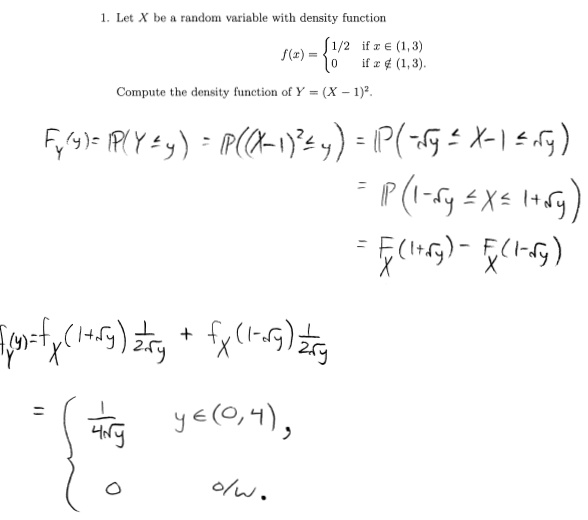 1. Let X be a random variable with density function
f(x) = { 1/2 if x ∈ (1, 3)
0 if x ∉ (1, 3).
Compute the density function of Y = (X − 1)².
F_Y(y) = ℙ(Y ≤ y) = ℙ((X−1)² ≤ y) = ℙ(−√y ≤ X−1 ≤ √y)
= ℙ(1−√y ≤ X ≤ 1+√y)
= F_X(1+√y) − F_X(1−√y)
f_Y(y) = f_X(1+√y) 1/(2√y) + f_X(1−√y) 1/(2√y)
= { 1/(4√y) y ∈ (0, 4),
0 o/w.